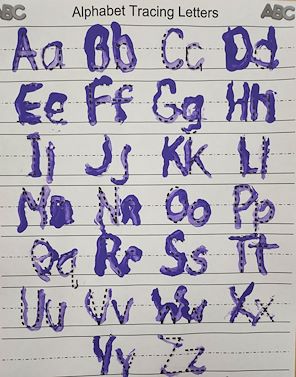 ABC Alphabet Tracing Letters ABC
Aa Bb Cc Dd
Ee Ff Gg Hh
Ii Jj Kk Ll
Mm Nn Oo Pp
Qq Rr Ss Tt
Uu Vv Ww Xx
Yy Zz